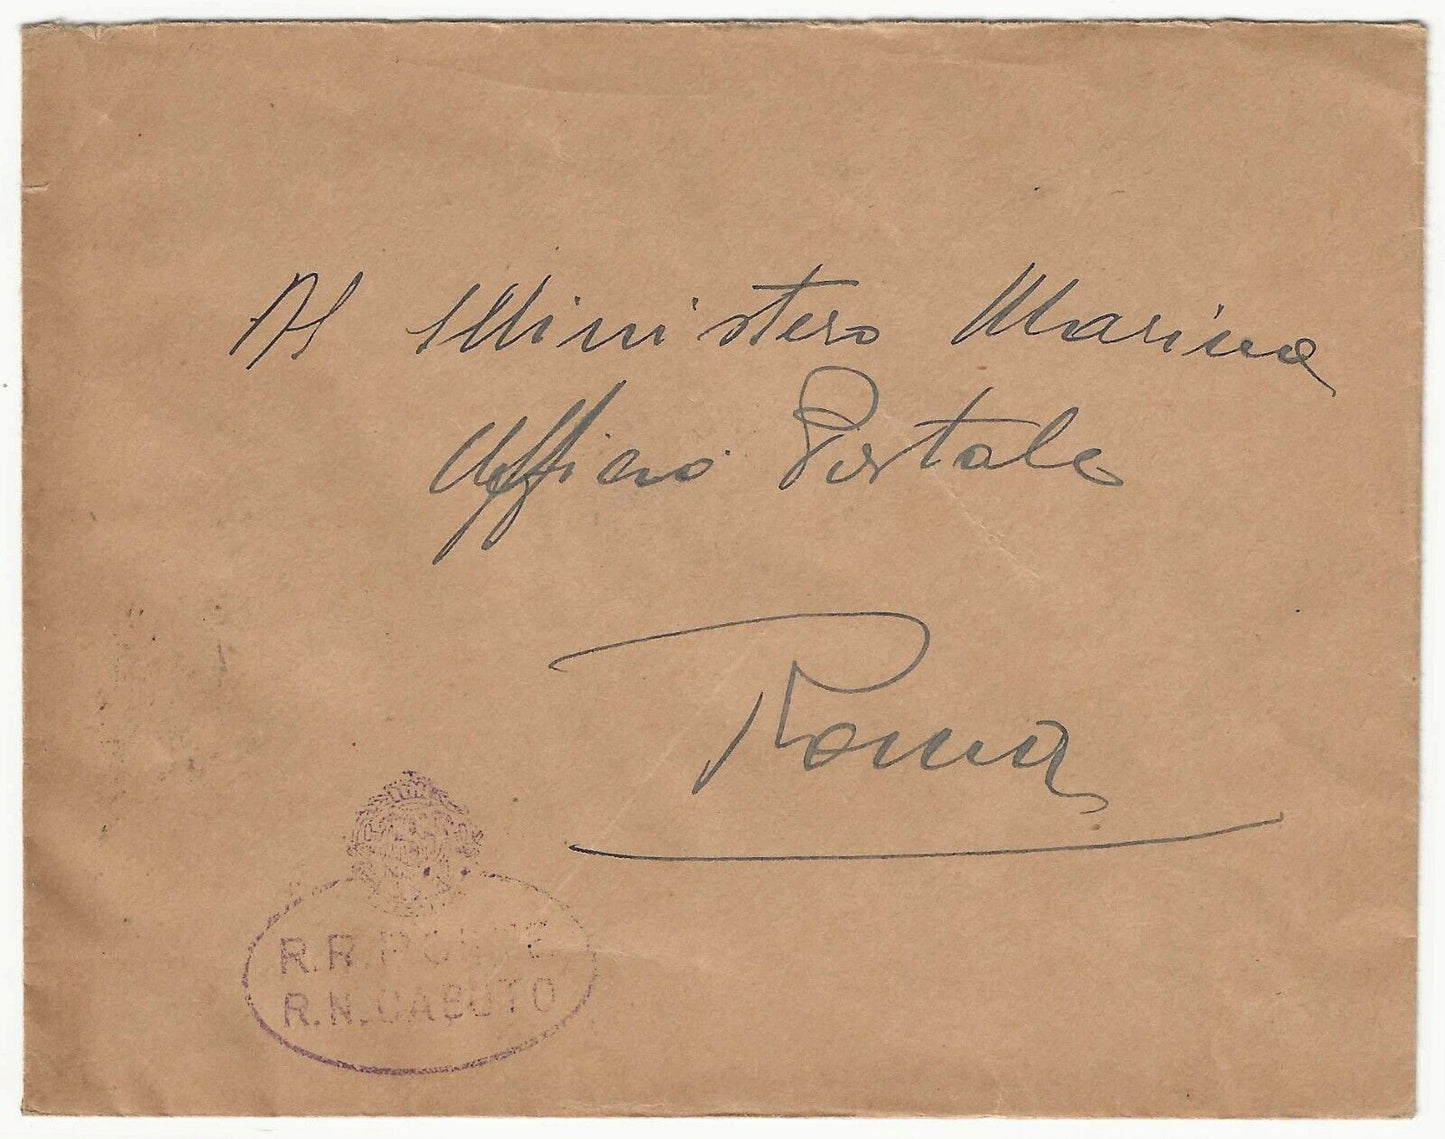 Al Ministero Marina
Ufficio Postale
Roma
R.R. POSTE
R.N. CABOTO